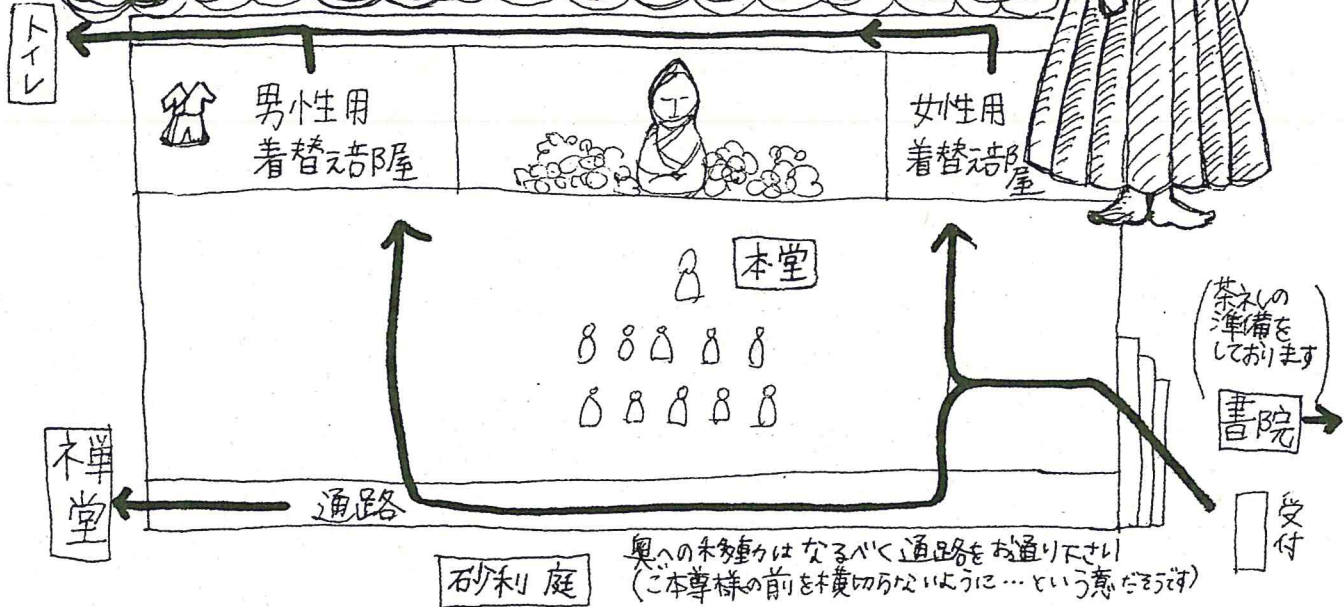 トイレ
男性用
着替え部屋
女性用
着替え部屋
本堂
(茶礼の
準備を
しております)
書院
禅堂
通路
受付
砂利庭
奥への移動はなるべく通路をお通り下さい
(ご本尊様の前を横切らないように…という意だそうです)